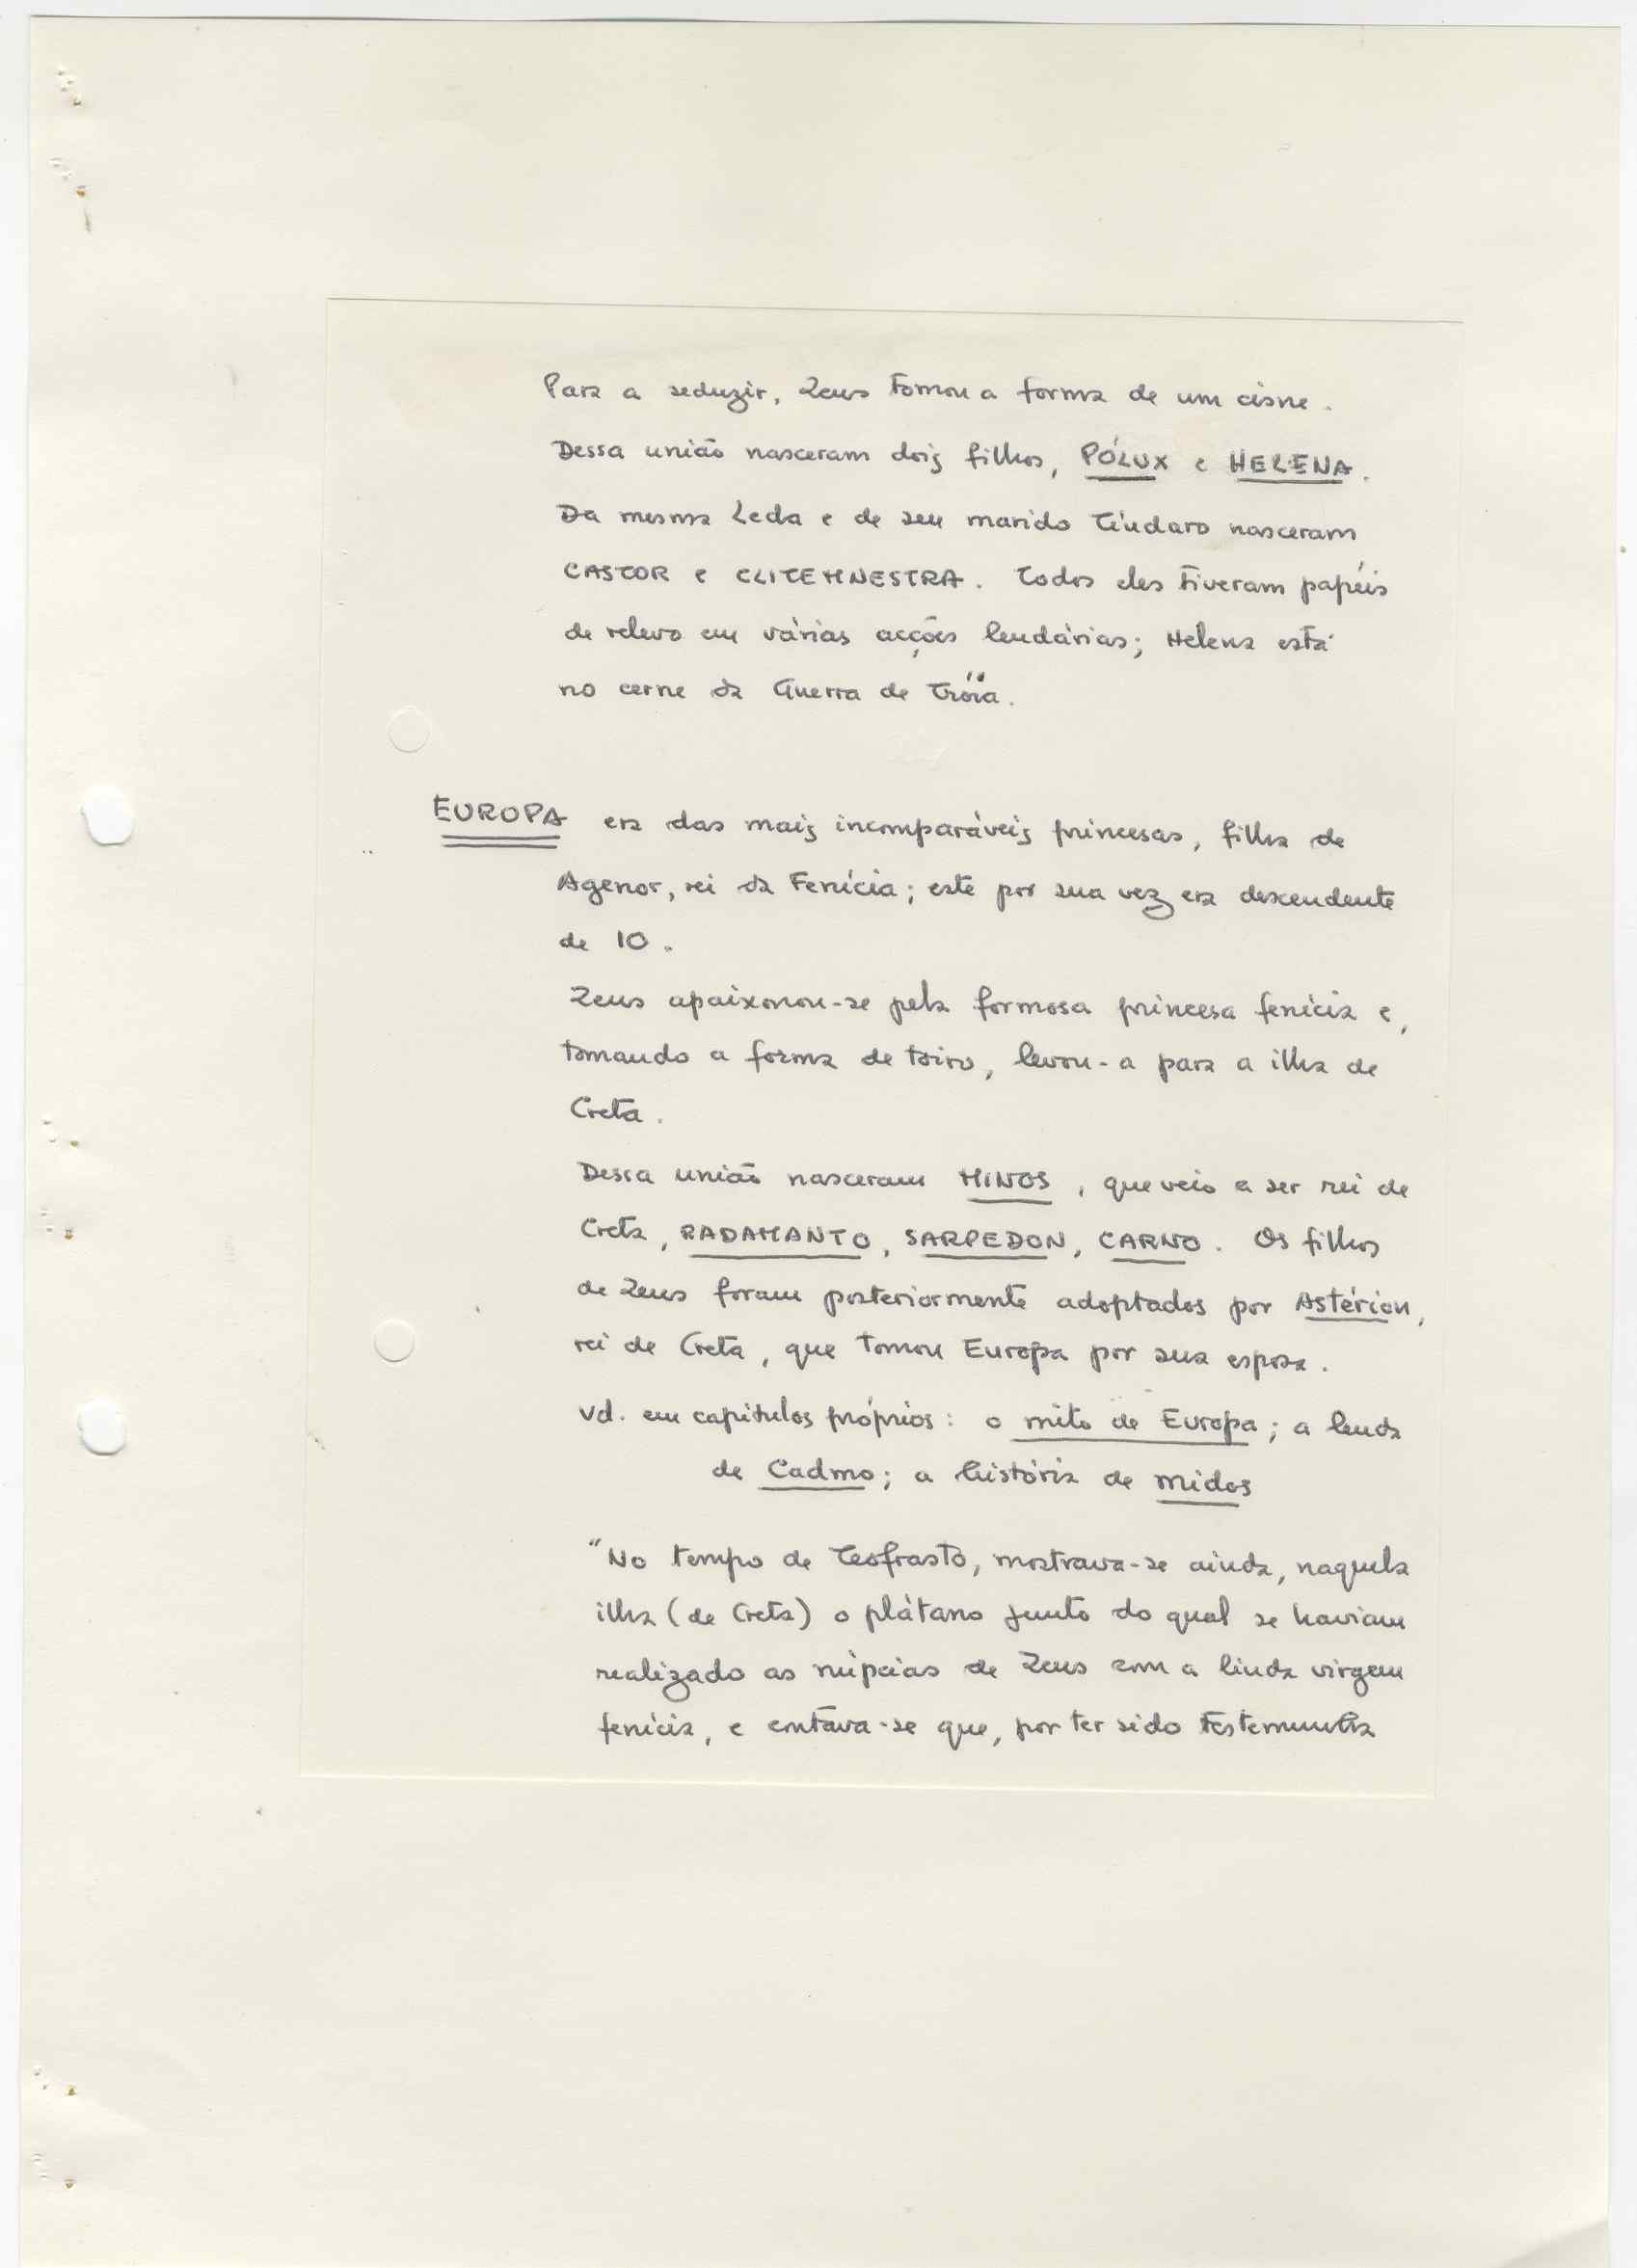 Para a seduzir, Zeus tomou a forma de um cisne.
Dessa união nasceram dois filhos, PÓLUX e HELENA.
Da mesma Leda e de seu marido Tíndaro nasceram
CASTOR e CLITEMNESTRA. Todos eles tiveram papéis
de relevo em várias acções lendárias; Helena está
no cerne da Guerra de Tróia.
EUROPA era das mais incomparáveis princesas, filha de
Agenor, rei da Fenícia; este por sua vez era descendente
de IO.
Zeus apaixonou-se pela formosa princesa fenícia e,
tomando a forma de toiro, levou-a para a ilha de
Creta.
Dessa união nasceram MINOS, que veio a ser rei de
Creta, RADAMANTO, SARPEDON, CARNO. Os filhos
de Zeus foram posteriormente adoptados por Astérion,
rei de Creta, que tomou Europa por sua esposa.
Vd. em capítulos próprios: o mito de Europa; a lenda
de Cadmo; a história de midos
"No tempo de Teofrasto, mostrava-se ainda, naquela
ilha (de Creta) o plátano junto do qual se haviam
realizado as núpcias de Zeus com a linda virgem
fenícia, e contava-se que, por ter sido testemunha